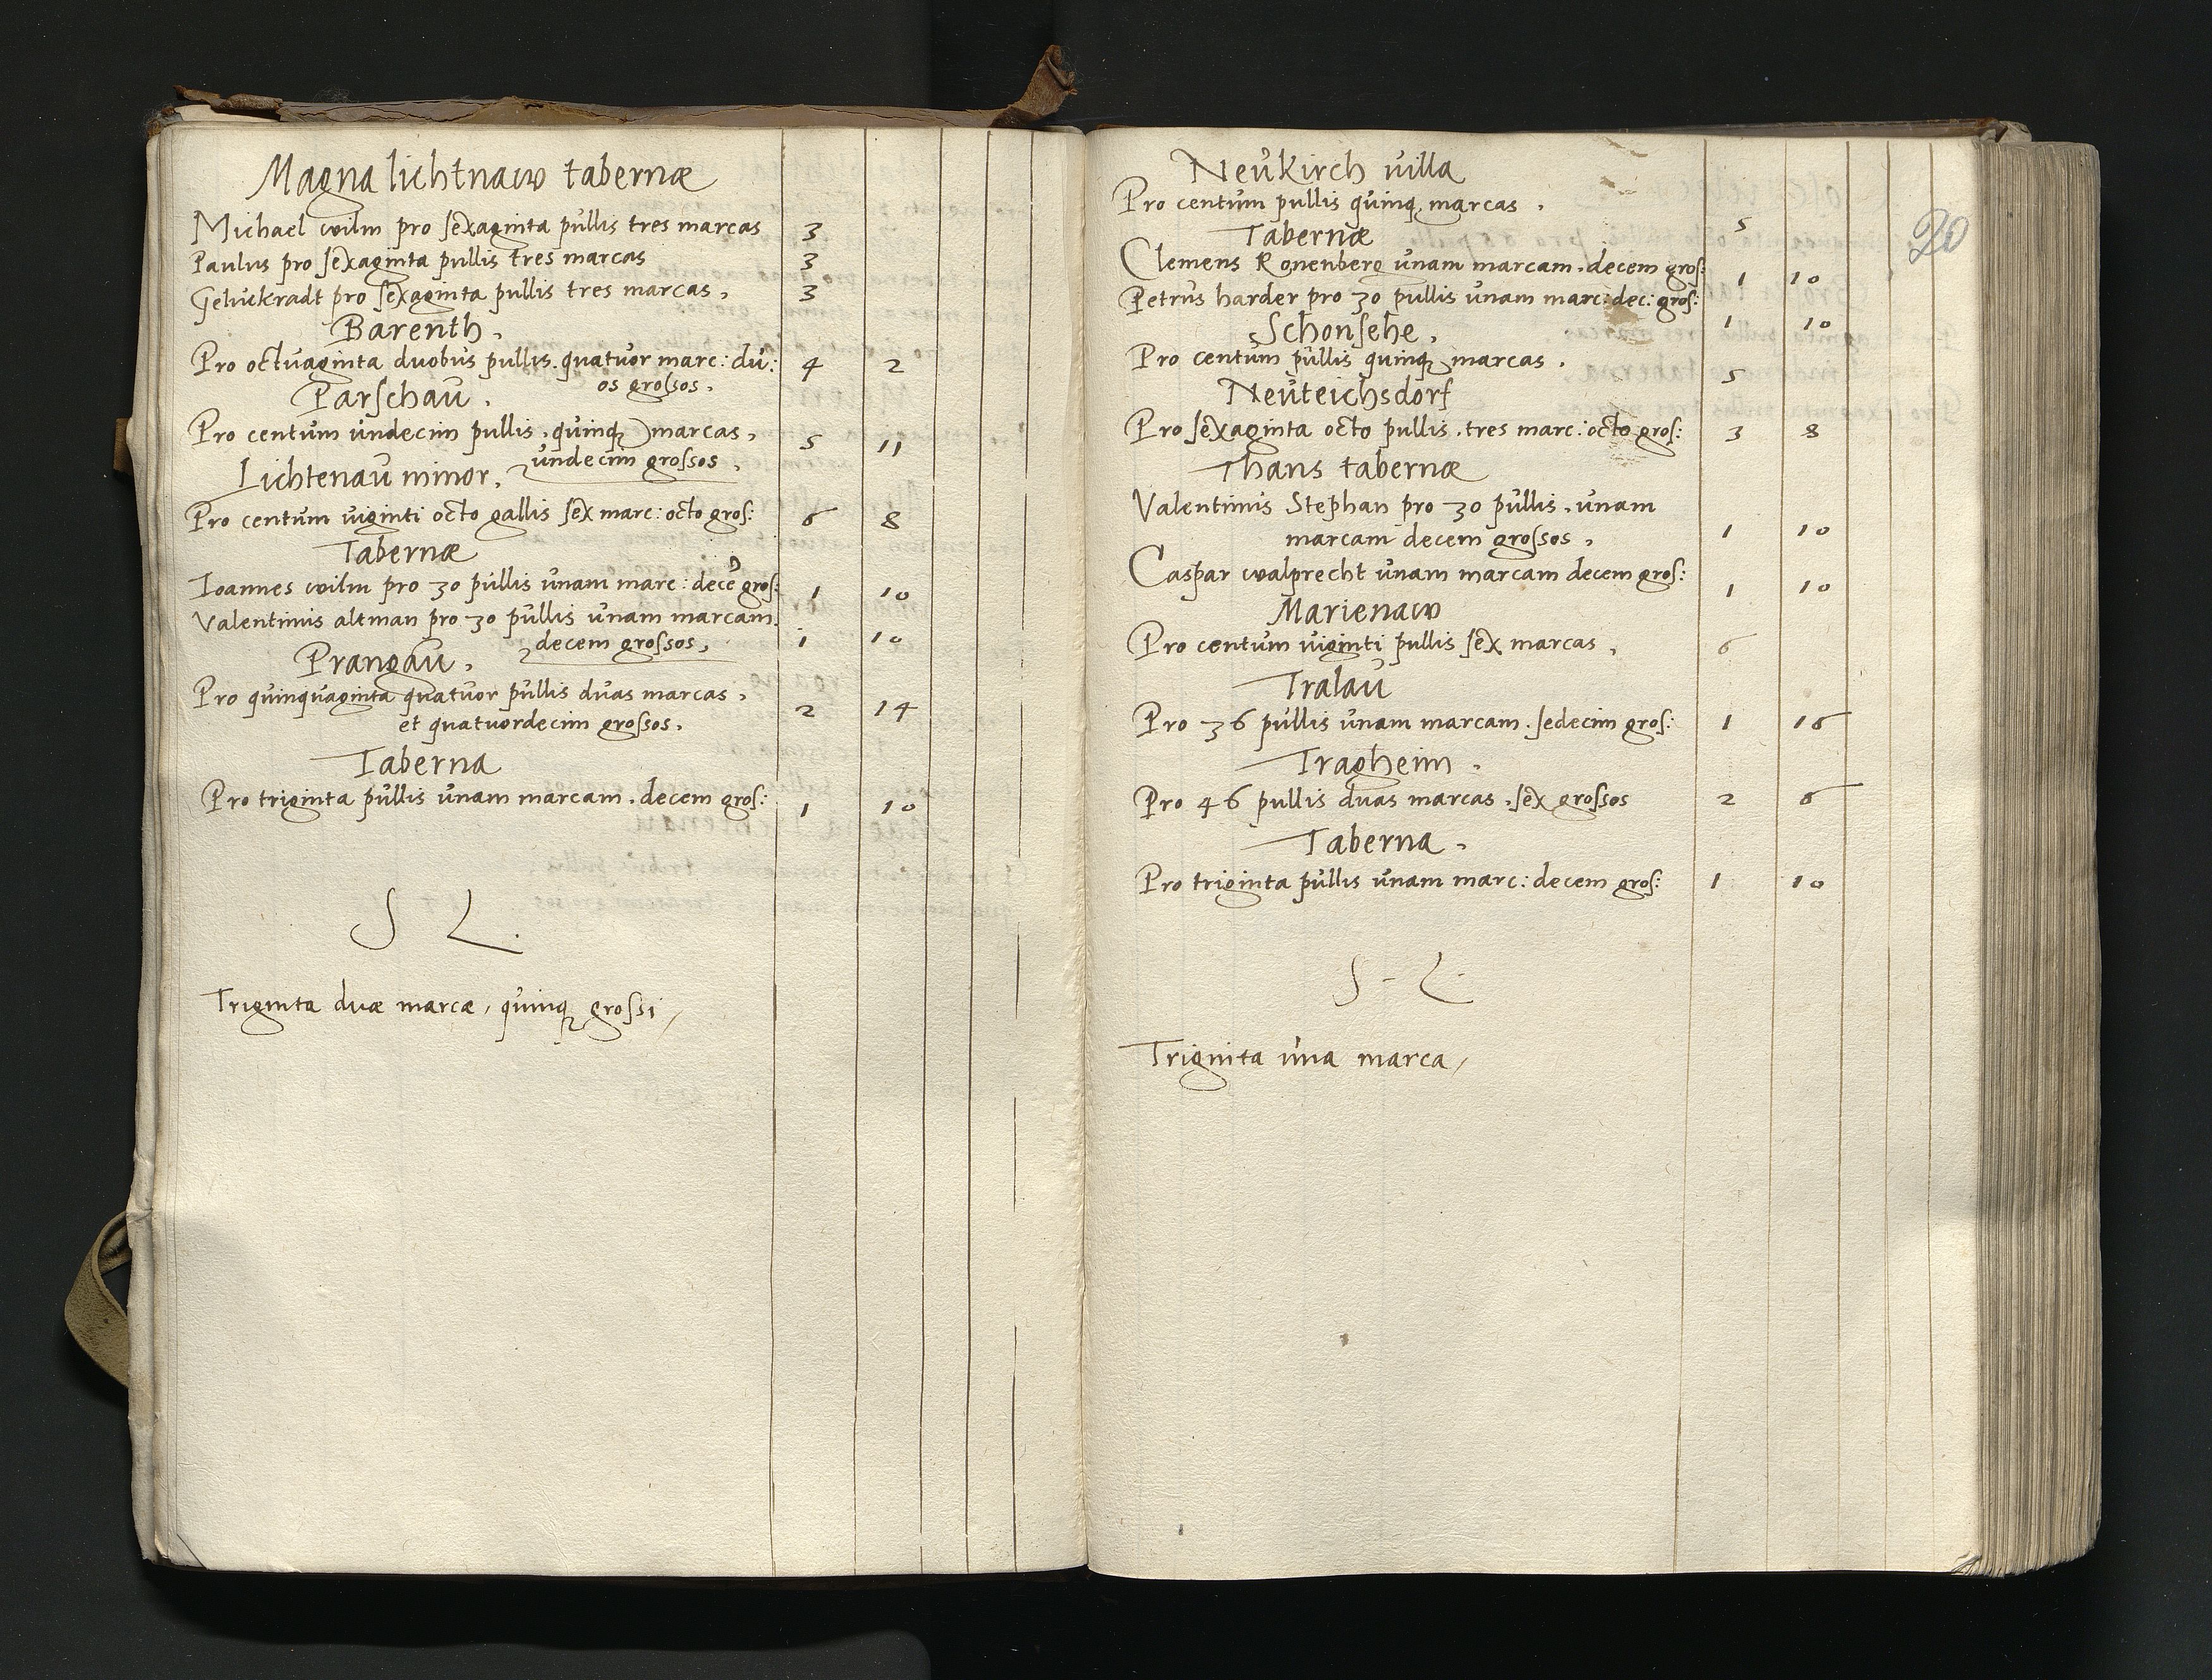 Magna lichtnaw tabernæ
Michael wilm pro sexaginta pullis tres marcas 3
Paulus pro sexaginta pullis tres marcas 3
Geluckradt pro sexaginta pullis tres marcas, 3
Barenth.
Pro octuaginta duobus pullis. quatuor marc: du: 4 2
os grossos.
Parschau.
Pro centum undecim pullis, quinq marcas, 5 11
undecim grossos,
Lichtenau minor.
Pro centum viginti octo gallis sex marc: octo gros: 6 8
Tabernæ
Ioannes wilm pro 30 pullis unam marc: decē gros: 1 10
Valentinus altman pro 30 pullis unam marcam. 1 10
decem grossos,
Prangau.
Pro quinquaginta quatuor pullis duas marcas, 2 14
et quatuordecim grossos.
Taberna
Pro triginta pullis unam marcam. decem gros: 1 10
S L.
Triginta duæ marcæ, quinq grossi,
20
Neukirch villa
Pro centum pullis quinq marcas. 5
Tabernæ
Clemens Ronenberg unam marcam. decem gros: 1 10
Petrus harder pro 30 pullis unam marc: dec: gros: 1 10
Schonsehe.
Pro centum pullis quinq marcas. 5
Neuteichsdorf
Pro sexaginta octo pullis. tres marc: octo gros: 3 8
Thans tabernæ
Valentinus Stephan pro 30 pullis. unam
marcam decem grossos, 1 10
Caspar walprecht unam marcam decem gros: 1 10
Marienaw
Pro centum viginti pullis sex marcas, 6
Tralau
Pro 36 pullis unam marcam. sedecim gros: 1 16
Tragheim.
Pro 46 pullis duas marcas. sex grossos 2 6
Taberna.
Pro triginta pullis unam marc: decem gros: 1 10
S - L.
Triginta una marca,